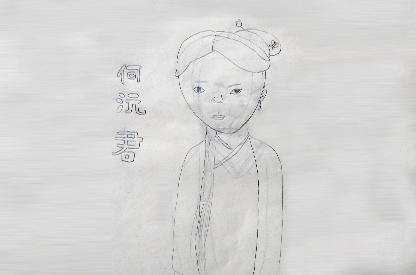 何沅君